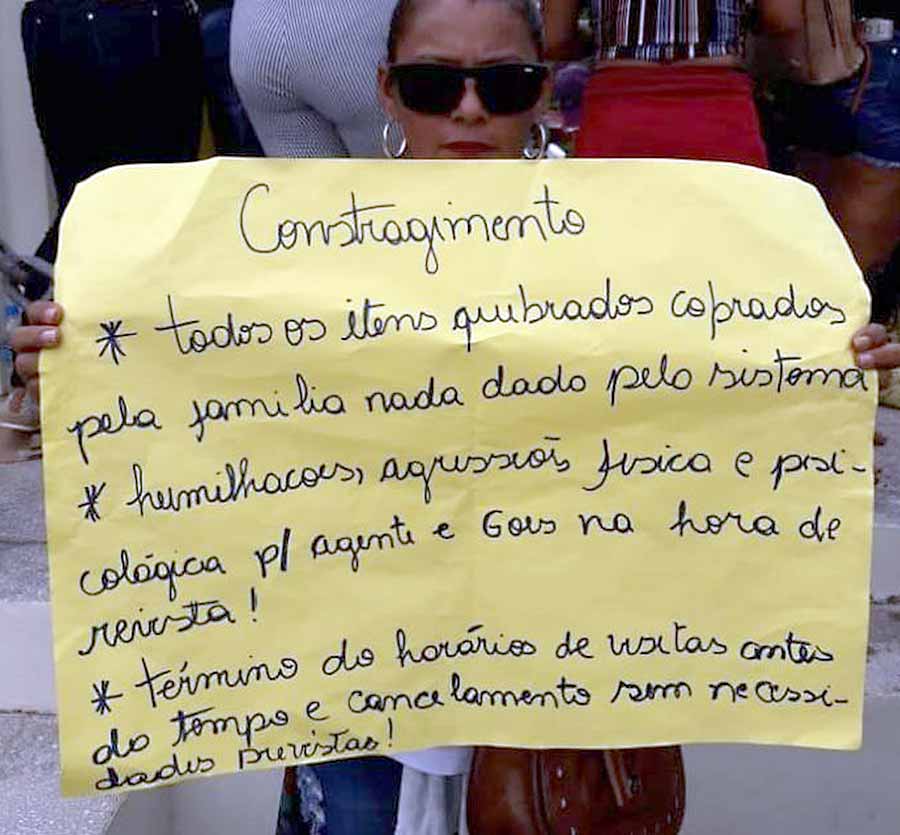 Constragimento
* todos os itens quebrados coprados
pela familia nada dado pelo sistema
* humilhacoes, agressiõis fisica e pisi-
cológica p/ agente e Goes na hora de
revista!
* término do horários de visitas antes
do tempo e cancelamento sem necessi-
dades previstas!